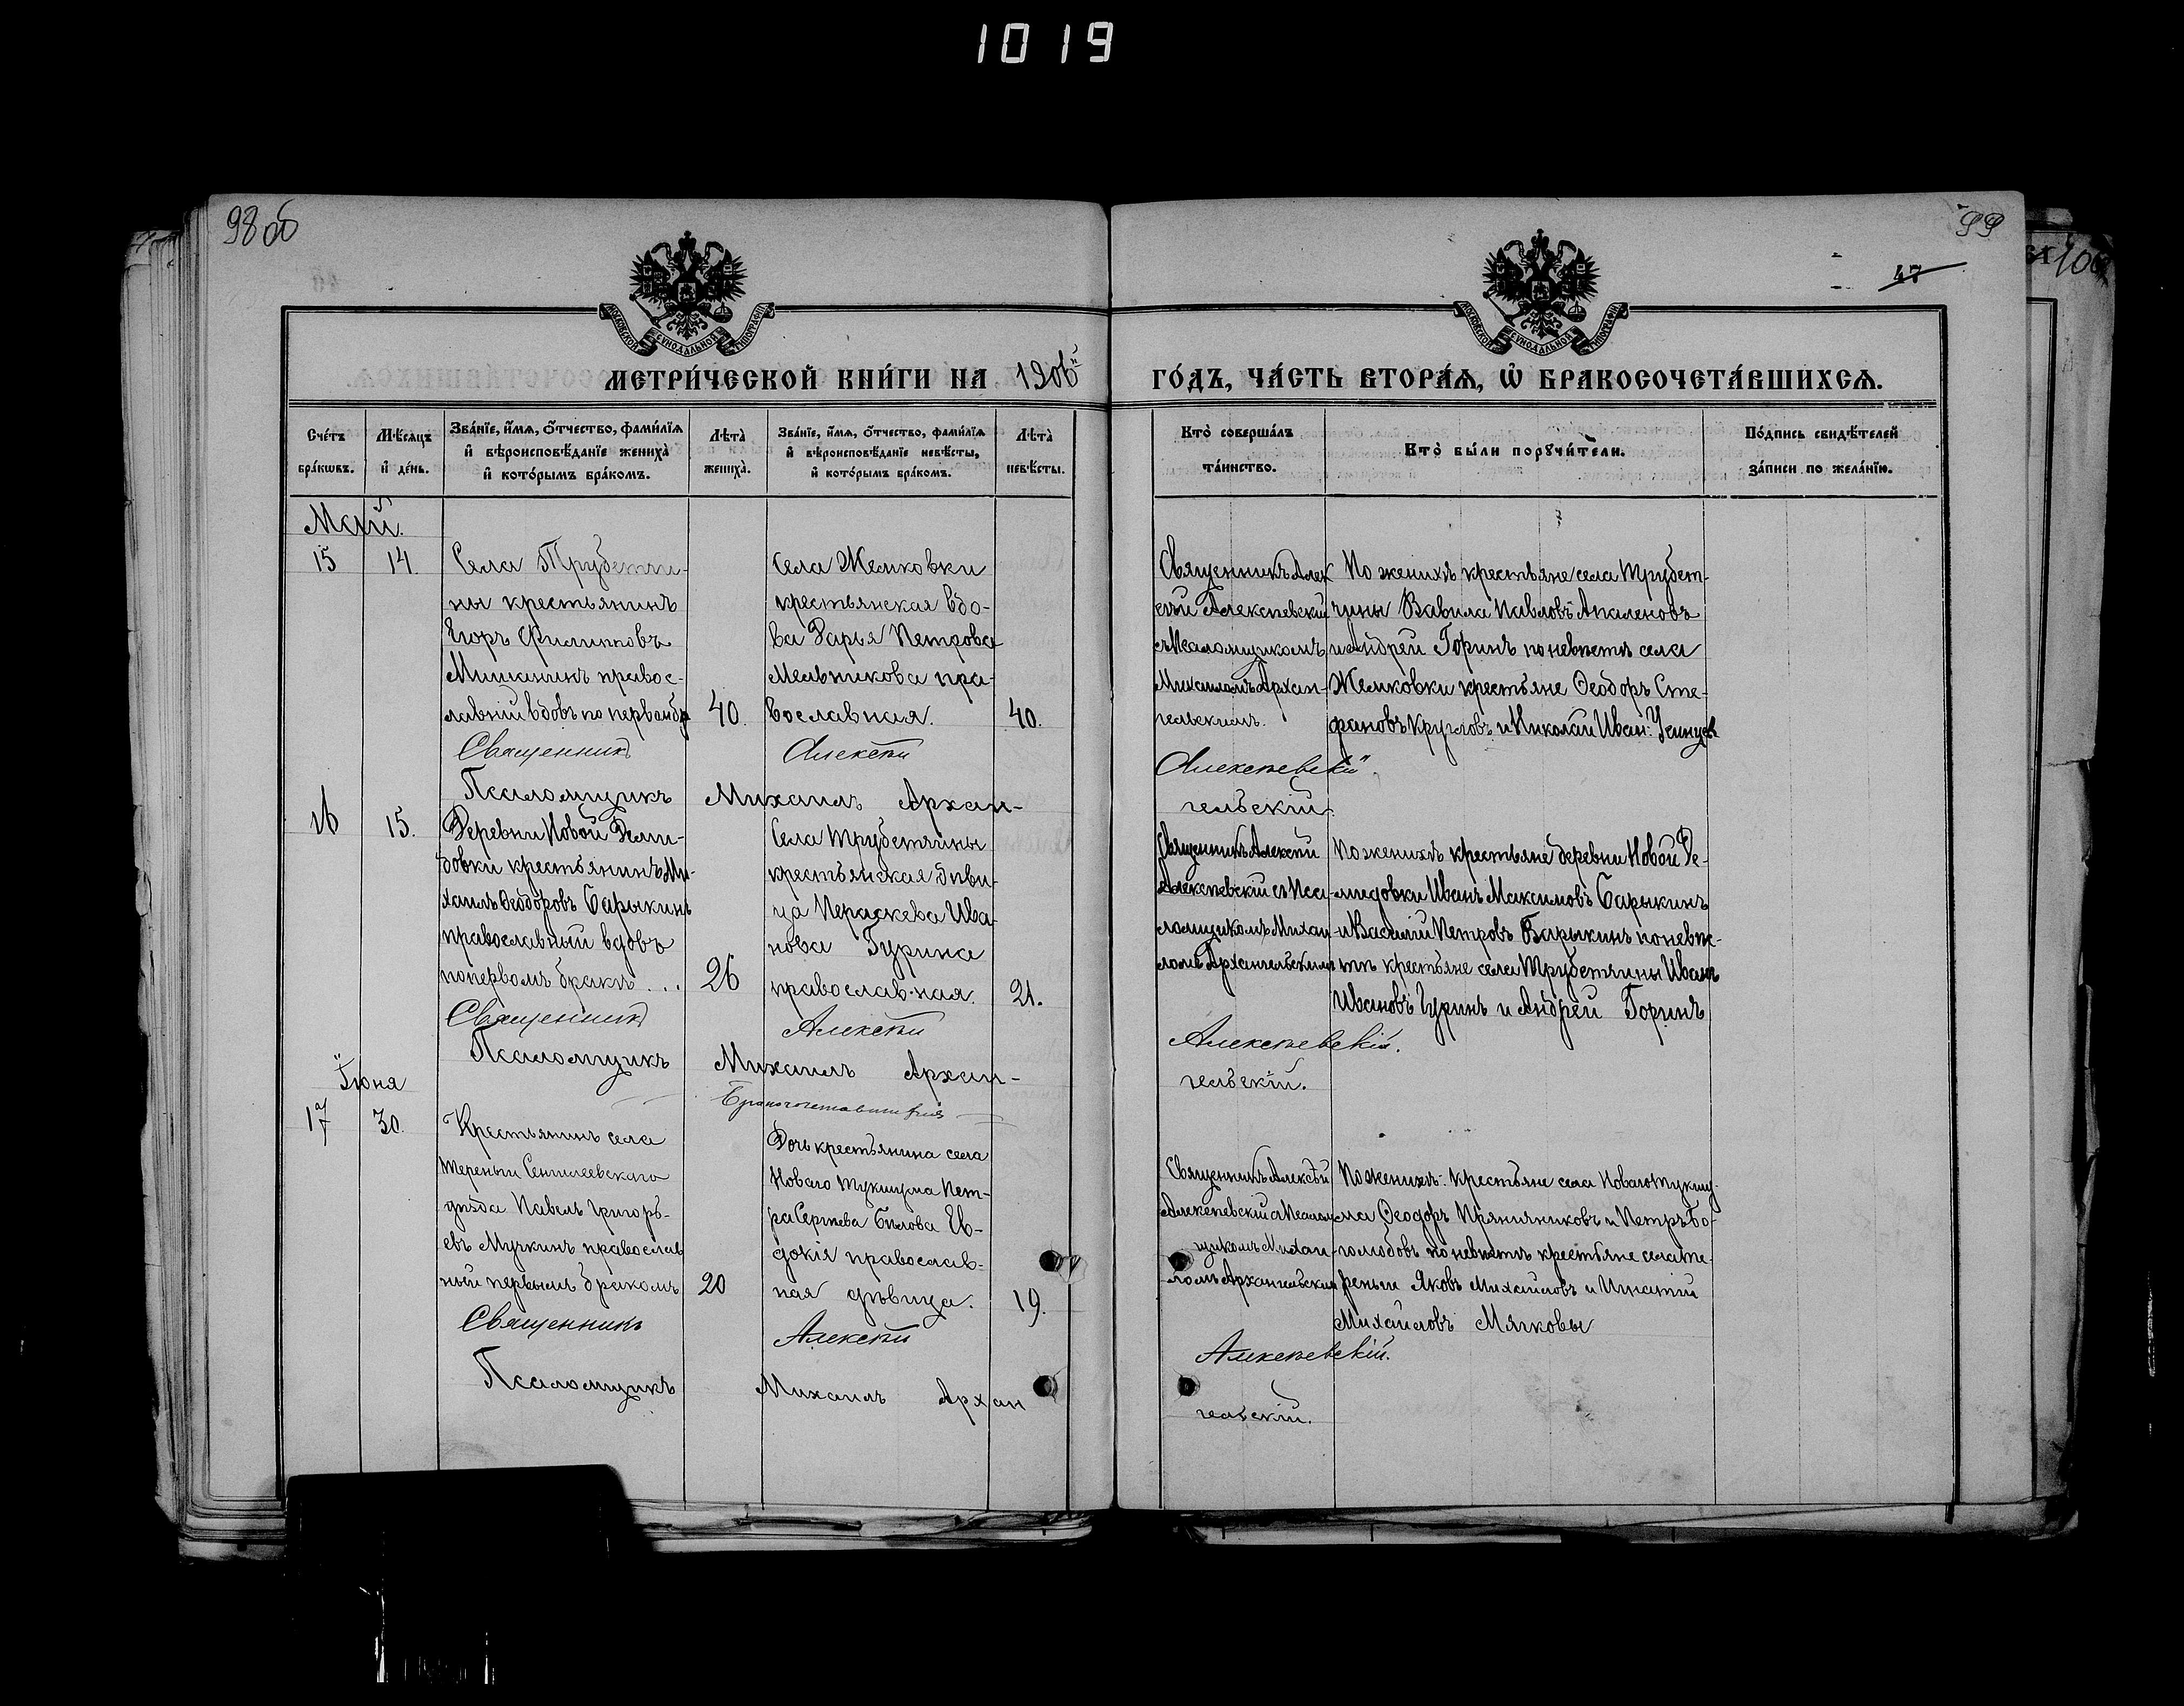 1019
98 об
99
47
100
МОСКОВСКОЙ СѴНОДАЛЬНОЙ ТИПОГРАФІИ
МОСКОВСКОЙ СѴНОДАЛЬНОЙ ТИПОГРАФІИ
МЕТРИ́ЧЕСКОЙ КНИ́ГИ НА 1906й ГО́ДЪ, ЧА́СТЬ ВТОРА́Ѧ, Ѽ БРАКОСОЧЕТА́ВШИХСѦ.
Сче́тъ бра́кѡвъ.
Мѣ́сѧцъ и҆ де́нь.
Зва́нїе, и҆́мѧ, ѻ҆́тчество, фами́лїѧ и҆ вѣроисповѣ́данїе жениха̀ и҆ кото́рымъ бра́комъ.
Лѣта̀ жениха̀.
Зва́нїе, и҆́мѧ, ѻ҆́тчество, фами́лїѧ и҆ вѣроисповѣ́данїе невѣ́сты, и҆ кото́рымъ бра́комъ.
Лѣта̀ невѣ́сты.
Кто̀ соверша́лъ та́инство.
Кто̀ бы́ли порꙋчи́тели.
По́дпись свидѣ́телей за́писи по жела́нїю.
Май.
15
14.
Села Трубетчи-
ны крестьянинъ
Егоръ Филипповъ
Мишанинъ правос-
лавній вдовъ по первомбр
40.
Села Жемковки
крестьянская вдо-
ва Дарья Петрова
Мельникова пра-
вославная.
40.
Священникъ Алек
сѣй Алексѣевскій
съ Псаломщикомъ
Михаиломъ Архан-
гельскимъ.
По женихѣ крестьяне села Трубет-
чины Вавила Павловъ Апаленовъ
и Андрей Горинъ по невѣстѣ села
Жемковки крестьяне Ѳеодоръ Сте-
фановъ Кругловъ и Николай Иван:
Священникъ Алексѣй Алексѣевскій.
Псаломщикъ Михаилъ Архан-гельскій.
16
15.
Деревни Новой Деми-
довки крестьянинъ Ми-
хаилъ Ѳеодоровъ Барыкинъ
православный вдовъ
попервомъ бракѣ...
26
Села Трубетчины
крестьянская дѣви-
ца Параскева Ива-
нова Гурина
православ-ная.
21.
Священникъ Алексѣй
Алексѣевскій съ Пса-
ломщикомъ Михаи-
ломъ Архангельскимъ
По женихѣ крестьяне деревни Новой Де-
мидовки Иванъ Максимовъ Барыкинъ
и Василій Петровъ Барыкинъ по невѣ-
стѣ крестьяне села Трубетчины Иванъ
Ивановъ Гуринъ и Андрей Горинъ
Священникъ Алексѣй Алексѣевскій.
Псаломщикъ Михаилъ Архан-гельскій.
Іюня
Бракосочетавшіеся
17
30.
Крестьянинъ села
Тереньги Сенгилеевскаго
уѣзда Павелъ Григорь-
евъ Мучкинъ православ
ный первымъ бракомъ
20
Дочь крестьянина села
Новаго Тукшума Пет-
ра Сергѣева Бѣлова Ев-
докія православ-
ная дѣвица.
19.
Священникъ Алексѣй
Алексѣевскій съ Псалом
щикомъ Михаи-
ломъ Архангельским
По женихѣ: крестьяне села Новаго Тукшу-
ма Ѳеодоръ Пряничниковъ и Петръ Бо-
голюбовъ по невѣстѣ крестьяне села Те-
реньги Яковъ Михайловъ и Игнатій
Михайловъ Мягковы
Священникъ Алексѣй Алексѣевскій.
Псаломщикъ Михаилъ Архан гельскій.